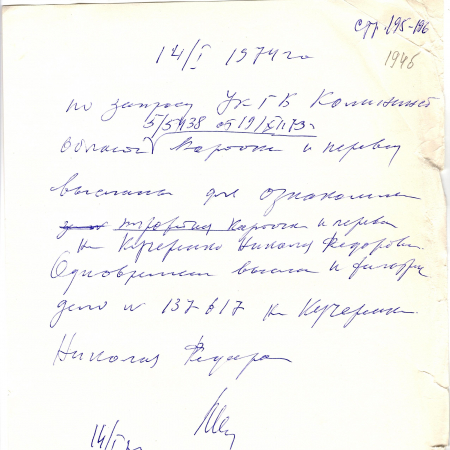 стр. 195-196
1946
14/I 1974 го
по запросу УКГБ Калининской
5/5438 от 19/XII 73 г
области карточки и перевод
высланы для ознакомле
карточки и перевод
на Кучеренко Николая Федорович
Одновременно выслал и фильтр
дело № 137617 на Кучеренко
Николая Федоро
14/I